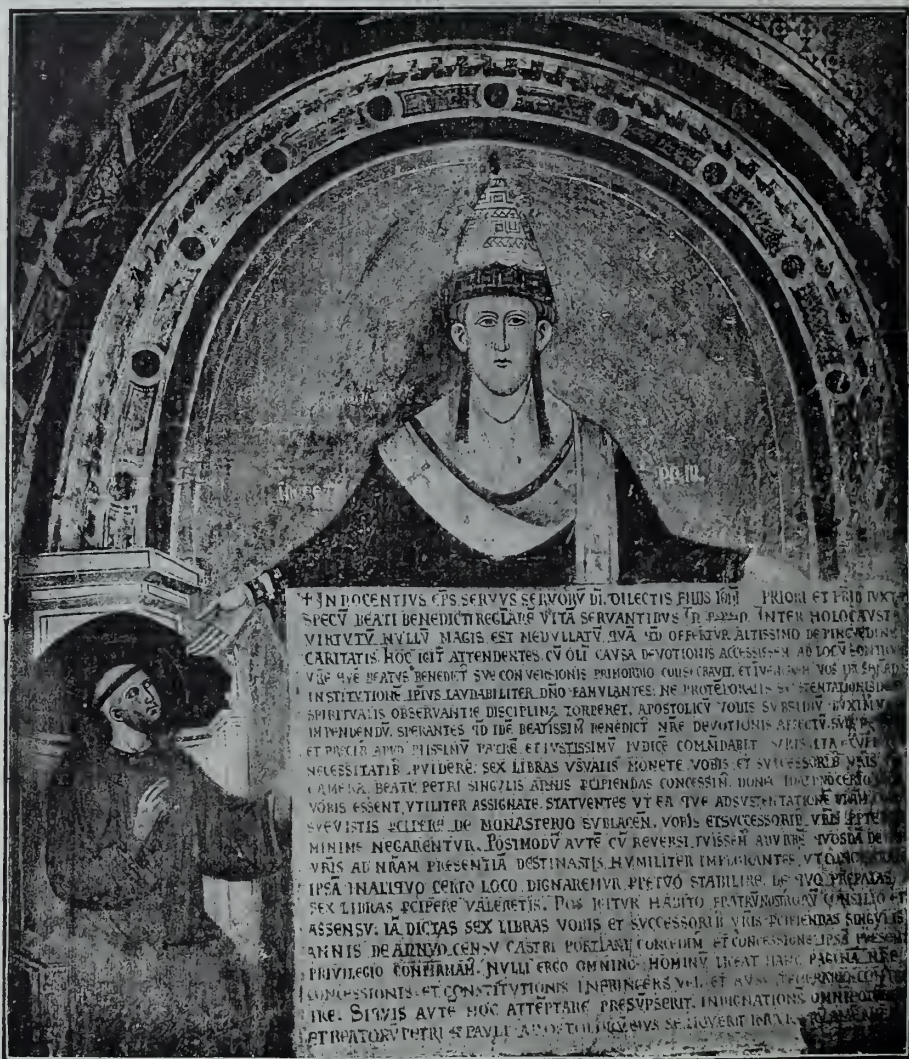 PP III
+ INNOCENTIVS EPS SERVVS SERVORV DI. DILECTIS FILIIS PRIORI ET FRIB IVXT
SPECV BEATI BENEDICTI REGLARE VITA SERVANTIBVS INTER HOLOCAVST
VIRTVTV NVLLV MAGIS EST MEDVLLATV. QVA QD OFFERTVR ALTISSIMO DE PINGVEDINE
CARITATIS. HOC IGIT ATTENDENTES. CV OLI CAVSA DEVOTIONIS ACCESSISSEM AD LOCV
QVE BEATVS BENEDICT SVE CONVERSIONIS PRIMORDIO CONSECRAVIT. ET VOS
INSTITVTIONE IPIVS LAVDABILITER DNO FAMVLANTES: NE
SPIRITVALIS OBSERVANTIE DISCIPLINA TORPERET. APOSTOLICV VOBIS SVBSIDIV DVXIMV
IMPENDENDV. SPERANTES QD IDE BEATISSIM BENEDICT NRE DEVOTIONIS AFFECTV.
ET PRECIB APVD PIISSIMV PATRE. ET IVSTISSIMV IVDICE COMMDABIT
NECESSITATIB PVIDERE: SEX LIBRAS VSVALIS MONETE VOBIS ET SVCCESSORIB VRIS
CAMERA BEATI PETRI SINGVLIS ANNIS PCIPIENDAS CONCESSIM. DONEC
VOBIS ESSENT VTILITER ASSIGNATE. STATVENTES VT EA QVE AD SVSTENTATIONE VRAM
SVEVISTIS PCIPERE DE MONASTERIO SVBLACEN. VOBIS ET SVCCESSORIB VRIS
MINIME NEGARENTVR. POSTMODV AVTE CV REVERSI FVISSEM AD VRBE QVOSDA DE
VRIS AD NRAM PRESENTIA DESTINASTIS. HVMILITER IMPLORANTES. VT
IPSA IN ALIQVO CERTO LOCO DIGNAREMVR PPETVO STABILIRE. DE QVO PREFATAS
SEX LIBRAS PCIPERE VALERETIS. NOS IGITVR HABITO FRATRV NOSTRORV CONSILIO ET
ASSENSV: IA DICTAS SEX LIBRAS VOBIS ET SVCCESSORIB VRIS PCIPIENDAS SINGVLIS
ANNIS DE ANNVO CENSV CASTRI PORTIANI CONCEDIM ET CONCESSIONE IPSA PRESENT
PRIVILEGIO CONFIRMAM. NVLLI ERGO OMNINO HOMINV LICEAT HANC PAGINA NRE
CONCESSIONIS ET CONSTITVTIONIS INFRINGERE VEL EI AVSV TEMERARIO
IRE. SIQVIS AVTE HOC ATTEPTARE PRESVPSERIT. INDIGNATIONE
ET BEATORV PETRI ET PAVLI SE NOVERIT